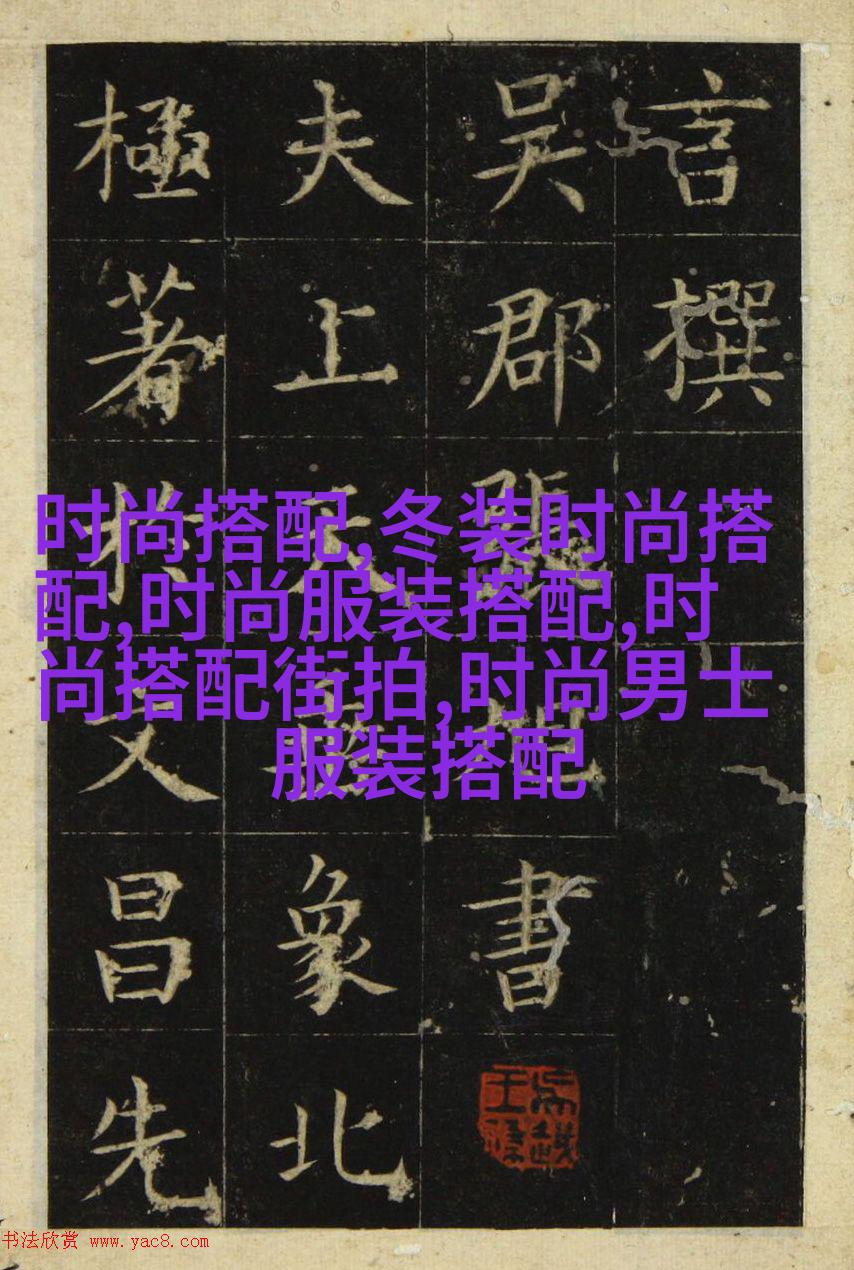 言撰
吳郡張書
夫上天象北
極著於文昌先
时尚搭配,冬装时尚搭
配,时尚服装搭配,时
尚搭配街拍,时尚男士
服装搭配
书法欣赏 www.yac8.com